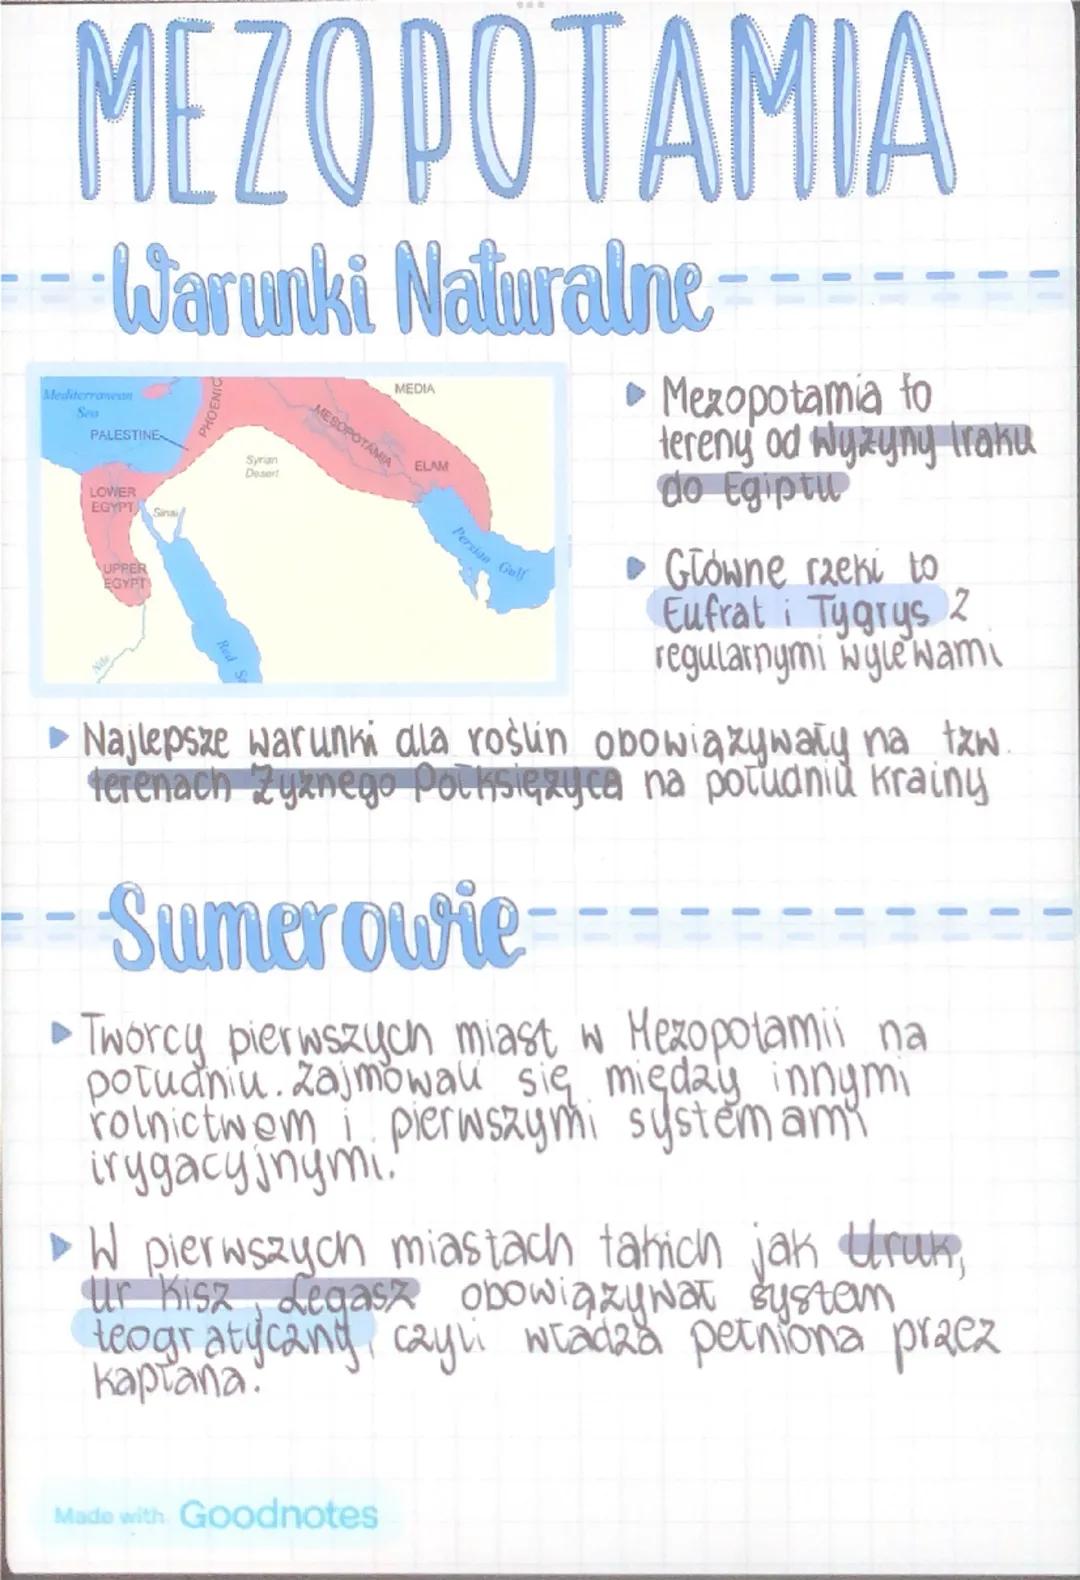 MEZOPOTAMIA
Warunki Naturalne
Mediterranean
Sea
PALESTINE
PHOENIC
MEDIA
MESOPOTAMIA
ELAM
Syrian
Desert
LOWER
EGYPT
Sinai
UPPER
EGYPT
Persian Gulf
Nile
Red Se
Mezopotamia to
tereny od Wyżyny Iraku
do Egiptu
Główne rzeki to
Eufrat i Tygrys z
regularnymi wylewami
Najlepsze warunki dla roślin obowiązywały na tzw.
terenach Żyznego Półksiężyca na południu krainy
Sumerowie
Twórcy pierwszych miast w Mezopotamii na
południu. Zajmowali się między innymi
rolnictwem i pierwszymi systemami
irygacyjnymi.
W pierwszych miastach takich jak Uruk,
Ur Kisz, Legasz obowiązywał system
teogratyczny, czyli władza pełniona przez
kapłana.
Made with Goodnotes